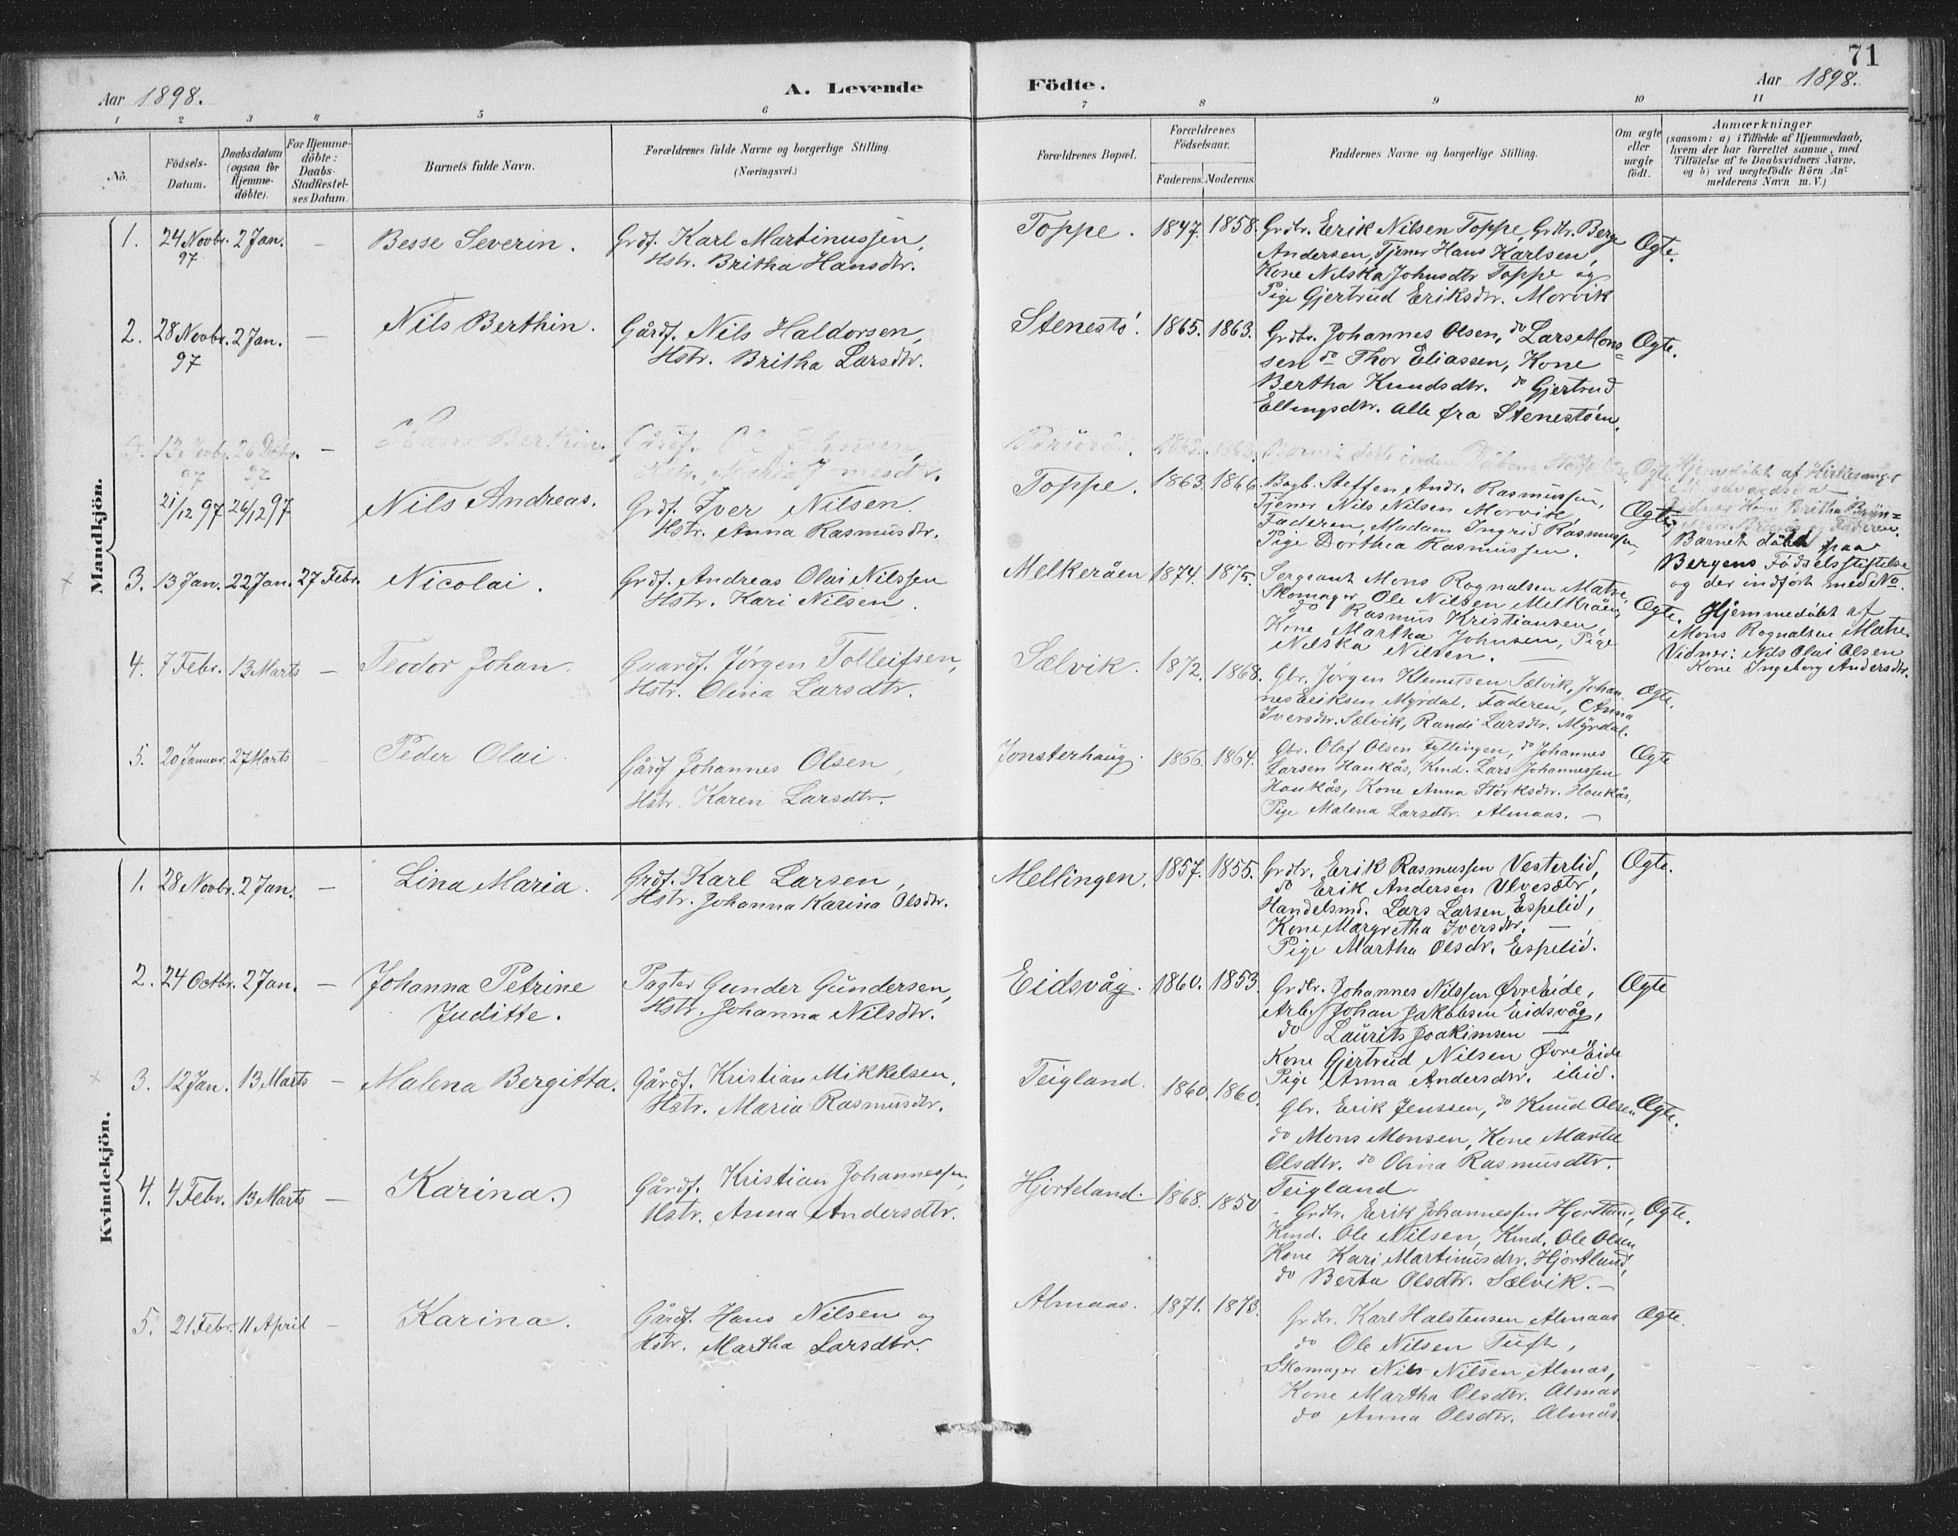 71
Aar 1898.
A. Levende
Födte.
Aar 1898.
1 2 3 4 5 6 7 8 9 10 11
No.
Födsels-
Datum.
Daabsdatum
(ogsaa for
Hjemme-
döbte).
For Hjemme-
döbte:
Daabs-
Stadfæstel-
ses Datum.
Barnets fulde Navn.
Forældrenes fulde Navne og borgerlige Stilling.
(Næringsvei.)
Forældrenes Bopæl.
Forældrenes
Födselsaar.
Faderens. Moderens.
Faddernes Navne og borgerlige Stilling.
Om ægte
eller
uægte
födt.
Anmærkninger
(saasom: a) i Tilfælde af Hjemmedaab,
hvem der har forrettet samme, med
Tilföielse af to Daabsvidners Navne,
og b) ved uægtefödte Börn An-
melderens Navn m. V.)
Mandkjön.
1. 24 Novbr. 97 2 Jan. – Besse Severin.
Grdf. Karl Martinussen,
Hstr. Britha Hansdtr.
Toppe. 1847. 1858.
Grdbr. Erik Nilsen Toppe, Grdbr. Berge
Andersen, Tjener Hans Karlsen,
Kone Nilska Johnsdtr Toppe og
Pige Gjertrud Eriksdtr. Morvik
Ægte.
2. 28 Novbr. 97 2 Jan. – Nils Berthin.
Gårdf. Nils Haldorsen,
Hstr. Britha Larsdtr.
Stenestö. 1865. 1863.
Grdbr. Johannes Olsen, do Lars Mons-
sen do Thor Eliassen, Kone
Bertha Knudsdtr. do Gjertrud
Ellingsdtr. Alle fra Stenestöen.
Ægte.
Berthin.
Gårdf. Ole
1863. 1863.
Ægte
Hjemdöbt af
21/12 97 26/12 97 Nils Andreas.
Grdf. Iver Nilsen.
Hstr. Anna Rasmusdtr.
Toppe. 1863. 1866.
Bogb. Steffen Andr. Rasmussen,
Tjener Nils Nilsen Morvik,
Faderen, Madam Ingrid Rasmussen,
Pige Dorthea Rasmussen.
Ægte
Barnet döbt paa
Bergens Födselsstiftelse
og der indfört med No.
3. 13 Jan. 22 Jan. 27 Febr. Nicolai.
Grdf. Andreas Olai Nilssen
Hstr. Kari Nilsen.
Melkeråen 1874. 1875.
Sergeant Mons Rognalsen Matre,
Skomager Ole Nilsen Melkråen,
do Rasmus Kristiansen,
Kone Martha Johnsen, Pige
Nilska Nilsen.
Ægte.
Hjemmedöbt af
Mons Rognalsen Matre.
Vidner: Nils Olai Olsen
Kone Ingeborg Andersdtr.
4. 7 Febr. 13 Marts – Teodor Johan.
Gaardf. Jørgen Tolleifsen,
Hstr. Olina Larsdtr.
Sælvik. 1872. 1868.
Gbr. Jørgen Klemetsen Sælvik, Johan-
nes Eriksen Myrdal, Faderen, Anna
Iversdtr. Sælvik, Randi Larsdtr. Myrdal.
Ægte.
5. 20 Januar. 27 Marts Peder Olai
Gårdf Johannes Olsen,
Hstr. Karen Larsdtr.
Jonsterhaug. 1866. 1864.
Gbr. Olaf Olsen Fyllingen, do Johannes
Larsen Haukås, Knud. Lars Johannessen
Haukås, Kone Anna Størksdtr. Haukås,
Pige Malena Larsdtr. Almaas. –
Ægte
Kvindekjön.
1. 28 Novbr. 2 Jan. – Lina Maria.
Grdf. Karl Larsen,
Hstr. Johanna Karina Olsdtr.
Mellingen. 1857. 1855.
Grdbr. Erik Rasmussen Vesterlid,
do Erik Andersen Ulvesætr,
Handelsmd. Lars Larsen Espelid,
Kone Margretha Iversdtr. –,
Pige Martha Olsdr. Espelid.
Ægte.
2. 24 Octbr. 2 Jan. – Johanna Petrine
Juditte.
Pagter Gunder Gundersen,
Hstr. Johanna Nilsdtr.
Eidsvåg. 1860. 1853.
Grdbr. Johannes Nilssen Øvre Eide,
Arb. Johan Jakobsen Eidsvåg,
do Laurits Joakimsen –
Kone Gjertrud Nilsen Øvre Eide
Pige Anna Andersdtr. ibid.
Ægte
3. 12 Jan. 13 Marts – Malena Bergitta.
Gårdf. Kristian Mikkelsen,
Hstr. Maria Rasmusdtr.
Teigland. 1860. 1860.
Gbr. Erik Jenssen, do Knud Olsen
do Mons Monsen, Kone Marta
Olsdtr. do Olina Rasmusdtr.
Teigland.
Ægte.
4. 4 Febr. 13 Marts – Karina.
Gårdf. Kristian Johannessen,
Hstr. Anna Andersdtr.
Hjorteland. 1868. 1850
Grdbr. Erik Johannessen Hjortland,
Kmd. Ole Nilsen, Kmd. Ole Olsen
Kone Kari Martinusdtr. Hjortland,
do Berta Olsdtr. Sælvik. –
Ægte.
5. 21 Febr. 11 April – Karina.
Gårdf. Hans Nilsen og
Hstr. Martha Larsdtr.
Almaas. 1871. 1873.
Grdbr. Karl Halstensen Almaas
do Ole Nilsen Tuft,
Skomager Nils Nilsen Almas,
Kone Martha Olsdtr. Almas
do Anna Olsdtr. Almås
Ægte.